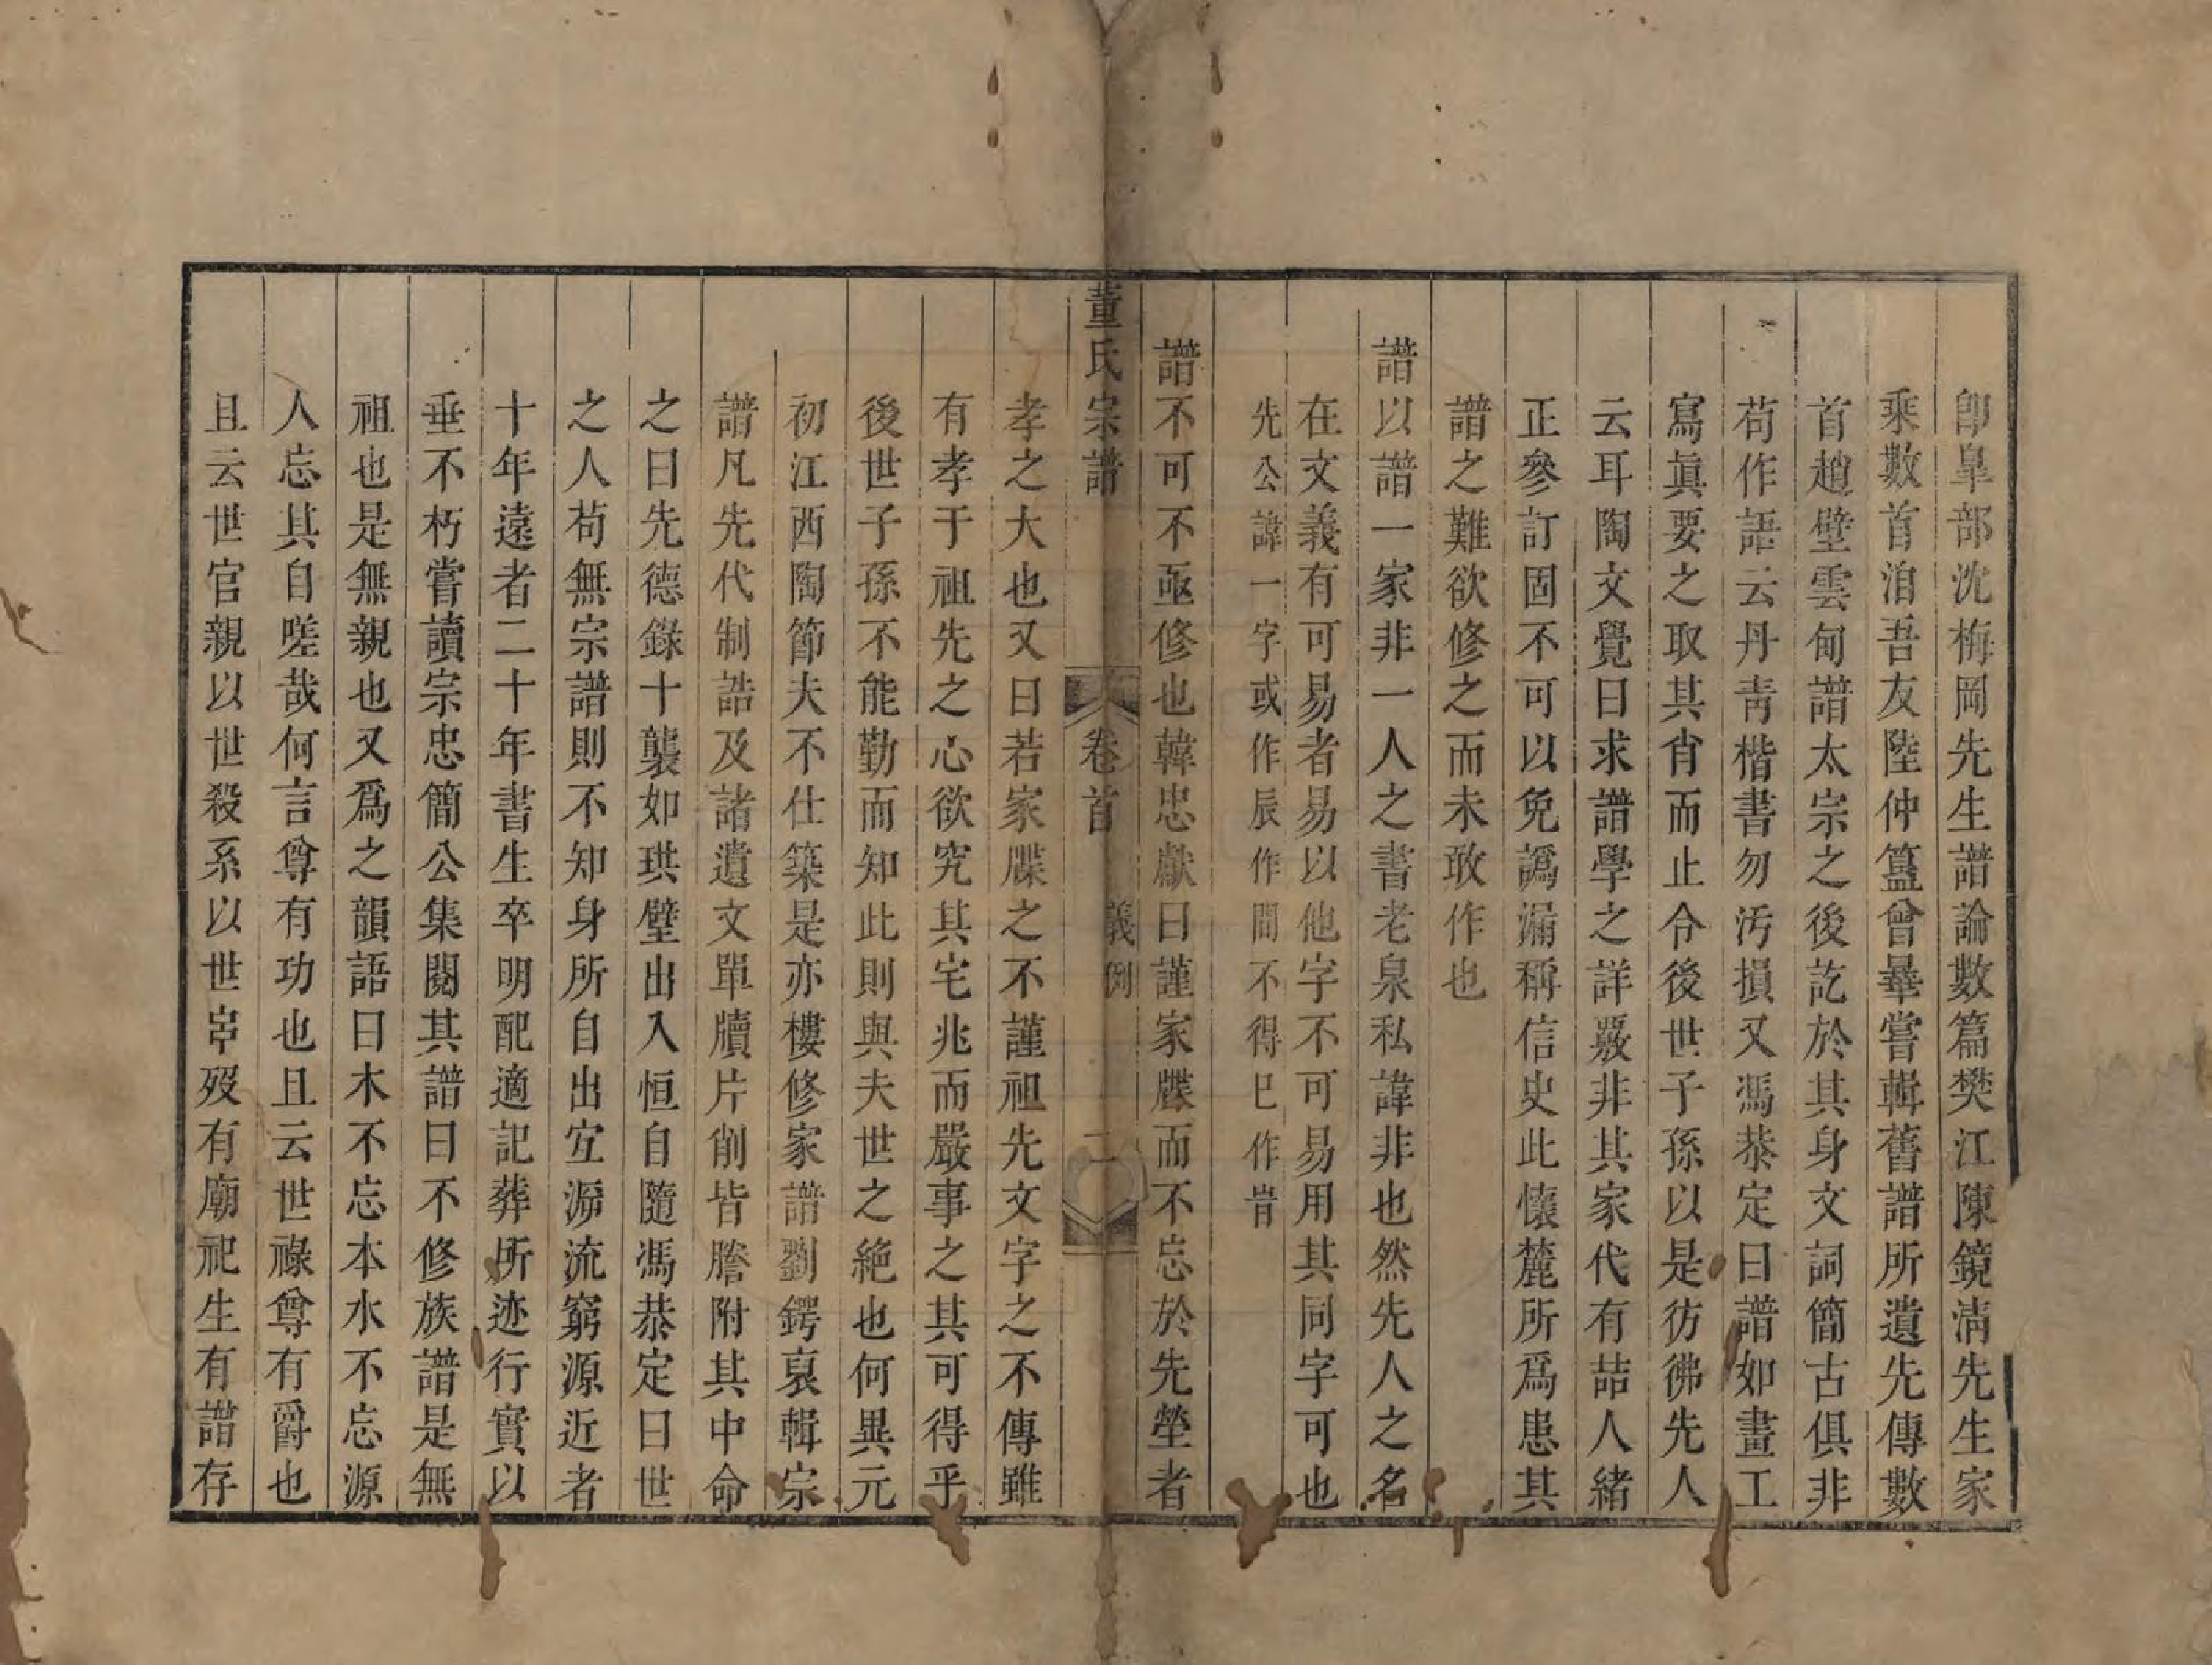 卽皐部沈梅岡先生譜論數篇樊江陳鏡淸先生家
乘數首洎吾友陸仲簋曾畢嘗輯舊譜所遺先傳數
首趙壁雲甸譜太宗之後訖於其身文詞簡古俱非
苟作語云丹靑楷書勿汚損又馮恭定曰譜如畫工
寫眞要之取其肖而止令後世子孫以是彷彿先人
云耳陶文覺曰求譜學之詳覈非其家代有喆人緒
正參訂固不可以免譌漏稱信史此懷麓所爲患其
譜之難欲修之而未敢作也
譜以譜一家非一人之書老泉私諱非也然先人之名
在文義有可易者易以他字不可易用其同字可也
先公諱一字或作辰作間不得已作旹
譜不可不亟修也韓忠獻曰謹家牒而不忘於先塋者
董氏宗譜 卷首 義例 二
孝之大也又曰若家牒之不謹祖先文字之不傳雖
有孝于祖先之心欲究其宅兆而嚴事之其可得乎
後世子孫不能勤而知此則與夫世之絶也何異元
初江西陶節夫不仕築是亦樓修家譜劉鍔裒輯宗
譜凡先代制誥及諸遺文單牘片削皆謄附其中命
之曰先德錄十襲如珙壁出入恒自隨馮恭定曰世
之人苟無宗譜則不知身所自出宐溯流窮源近者
十年遠者二十年書生卒明配適記葬所迹行實以
垂不朽嘗讀宗忠簡公集閱其譜曰不修族譜是無
祖也是無親也又爲之韻語曰木不忘本水不忘源
人忘其自嗟哉何言尊有功也且云世祿尊有爵也
且云世官親以世殺系以世歿有廟祀生有譜存